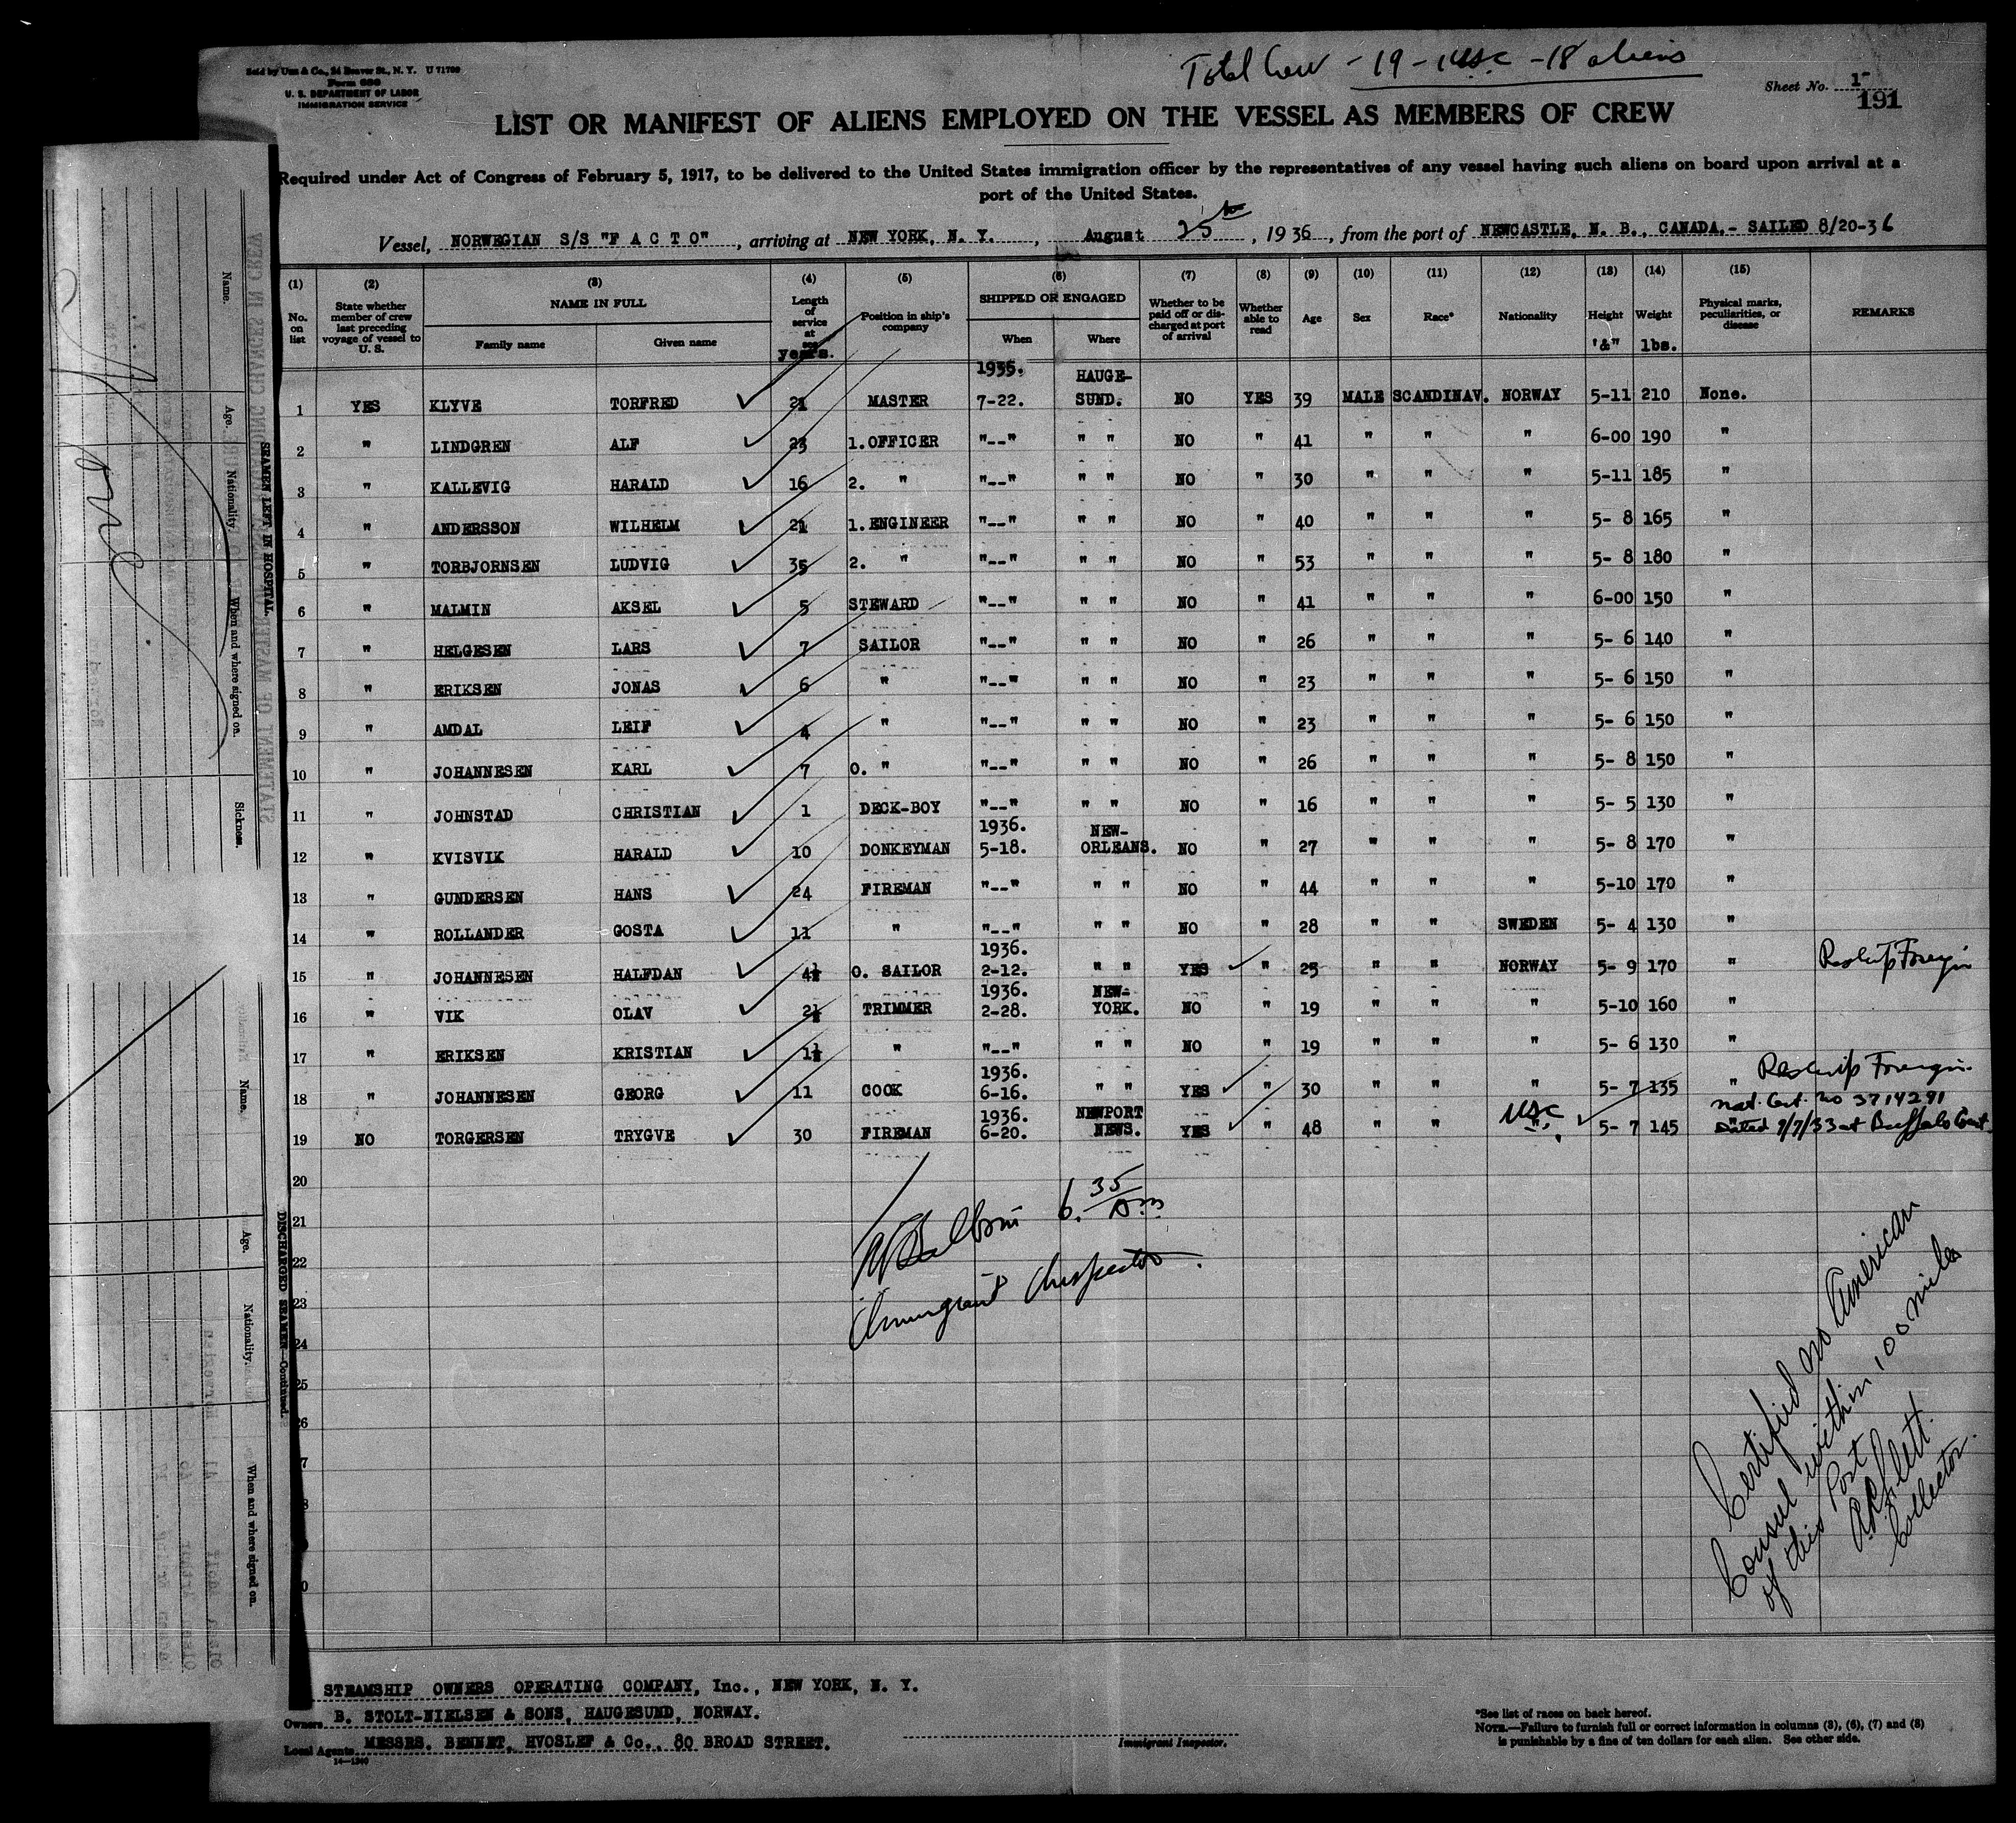 Total Crew - 19 - 1 USC - 18 aliens
Sold by Unz & Co., 24 Beaver St., N. Y. U 71799
Form 680
U. S. DEPARTMENT OF LABOR
IMMIGRATION SERVICE
Sheet No. 1-
191
LIST OR MANIFEST OF ALIENS EMPLOYED ON THE VESSEL AS MEMBERS OF CREW
Required under Act of Congress of February 5, 1917, to be delivered to the United States immigration officer by the representatives of any vessel having such aliens on board upon arrival at a
port of the United States.
Vessel, NORWEGIAN S/S "F A C T O", arriving at NEW YORK, N. Y., August 25th, 1936, from the port of NEWCASTLE, N. B., CANADA.- SAILED 8/20-36
(1) (2) (3) (4) (5) (6) (7) (8) (9) (10) (11) (12) (13) (14) (15)
No. on list | State whether member of crew last preceding voyage of vessel to U. S. | NAME IN FULL Family name Given name | Length of service at sea years. | Position in ship's company | SHIPPED OR ENGAGED When Where | Whether to be paid off or discharged at port of arrival | Whether able to read | Age | Sex | Race* | Nationality | Height '&" | Weight lbs. | Physical marks, peculiarities, or disease | REMARKS
1935. HAUGE-
1 YES KLYVE TORFRED 21 MASTER 7-22. SUND. NO YES 39 MALE SCANDINAV. NORWAY 5-11 210 None.
2 " LINDGREN ALF 23 1.OFFICER "--" " " NO " 41 " " " 6-00 190 "
3 " KALLEVIG HARALD 16 2. " "--" " " NO " 30 " " " 5-11 185 "
4 " ANDERSSON WILHELM 21 1.ENGINEER "--" " " NO " 40 " " " 5- 8 165 "
5 " TORBJORNSEN LUDVIG 35 2. " "--" " " NO " 53 " " " 5- 8 180 "
6 " MALMIN AKSEL 5 STEWARD "--" " " NO " 41 " " " 6-00 150 "
7 " HELGESEN LARS 7 SAILOR "--" " " NO " 26 " " " 5- 6 140 "
8 " ERIKSEN JONAS 6 " "--" " " NO " 23 " " " 5- 6 150 "
9 " AMDAL LEIF 4 " "--" " " NO " 23 " " " 5- 6 150 "
10 " JOHANNESEN KARL 7 O. " "--" " " NO " 26 " " " 5- 8 150 "
11 " JOHNSTAD CHRISTIAN 1 DECK-BOY "--" " " NO " 16 " " " 5- 5 130 "
1936. NEW-
12 " KVISVIK HARALD 10 DONKEYMAN 5-18. ORLEANS. NO " 27 " " " 5- 8 170 "
13 " GUNDERSEN HANS 24 FIREMAN "--" " " NO " 44 " " " 5-10 170 "
14 " ROLLANDER GOSTA 11 " "--" " " NO " 28 " " SWEDEN 5- 4 130 "
1936.
15 " JOHANNESEN HALFDAN 4½ O. SAILOR 2-12. " " YES " 25 " " NORWAY 5- 9 170 " Reship Foreign
1936. NEW-
16 " VIK OLAV 2½ TRIMMER 2-28. YORK. NO " 19 " " " 5-10 160 "
17 " ERIKSEN KRISTIAN 1½ " "--" " " NO " 19 " " " 5- 6 130 "
1936.
18 " JOHANNESEN GEORG 11 COOK 6-16. " " YES " 30 " " " 5- 7 135 " Reship Foreign.
1936. NEWPORT USC Nat. Cert. No 3714291
19 NO TORGERSEN TRYGVE 30 FIREMAN 6-20. NEWS. YES " 48 " " " 5- 7 145 " Dated 9/7/33 at Buffalo Court.
20
21
22
23
24
25
26
6.35 Am
Immigrant Inspector.
Certified no American
Consul within 100 miles
of this Port
Collector.
STEAMSHIP OWNERS OPERATING COMPANY, Inc., NEW YORK, N. Y.
Owners B. STOLT-NIELSEN & SONS, HAUGESUND, NORWAY.
Local Agents MESSRS. BENNET, HVOSLEF & Co., 80 BROAD STREET.
14-1240
Immigrant Inspector.
*See list of races on back hereof.
NOTE.—Failure to furnish full or correct information in columns (3), (6), (7) and (8)
is punishable by a fine of ten dollars for each alien. See other side.
SEAMEN LEFT IN HOSPITAL.
Name. Age. Nationality. When and where signed on. Sickness.
None
DISCHARGED SEAMEN—Continued.
Name. Age. Nationality. When and where signed on.